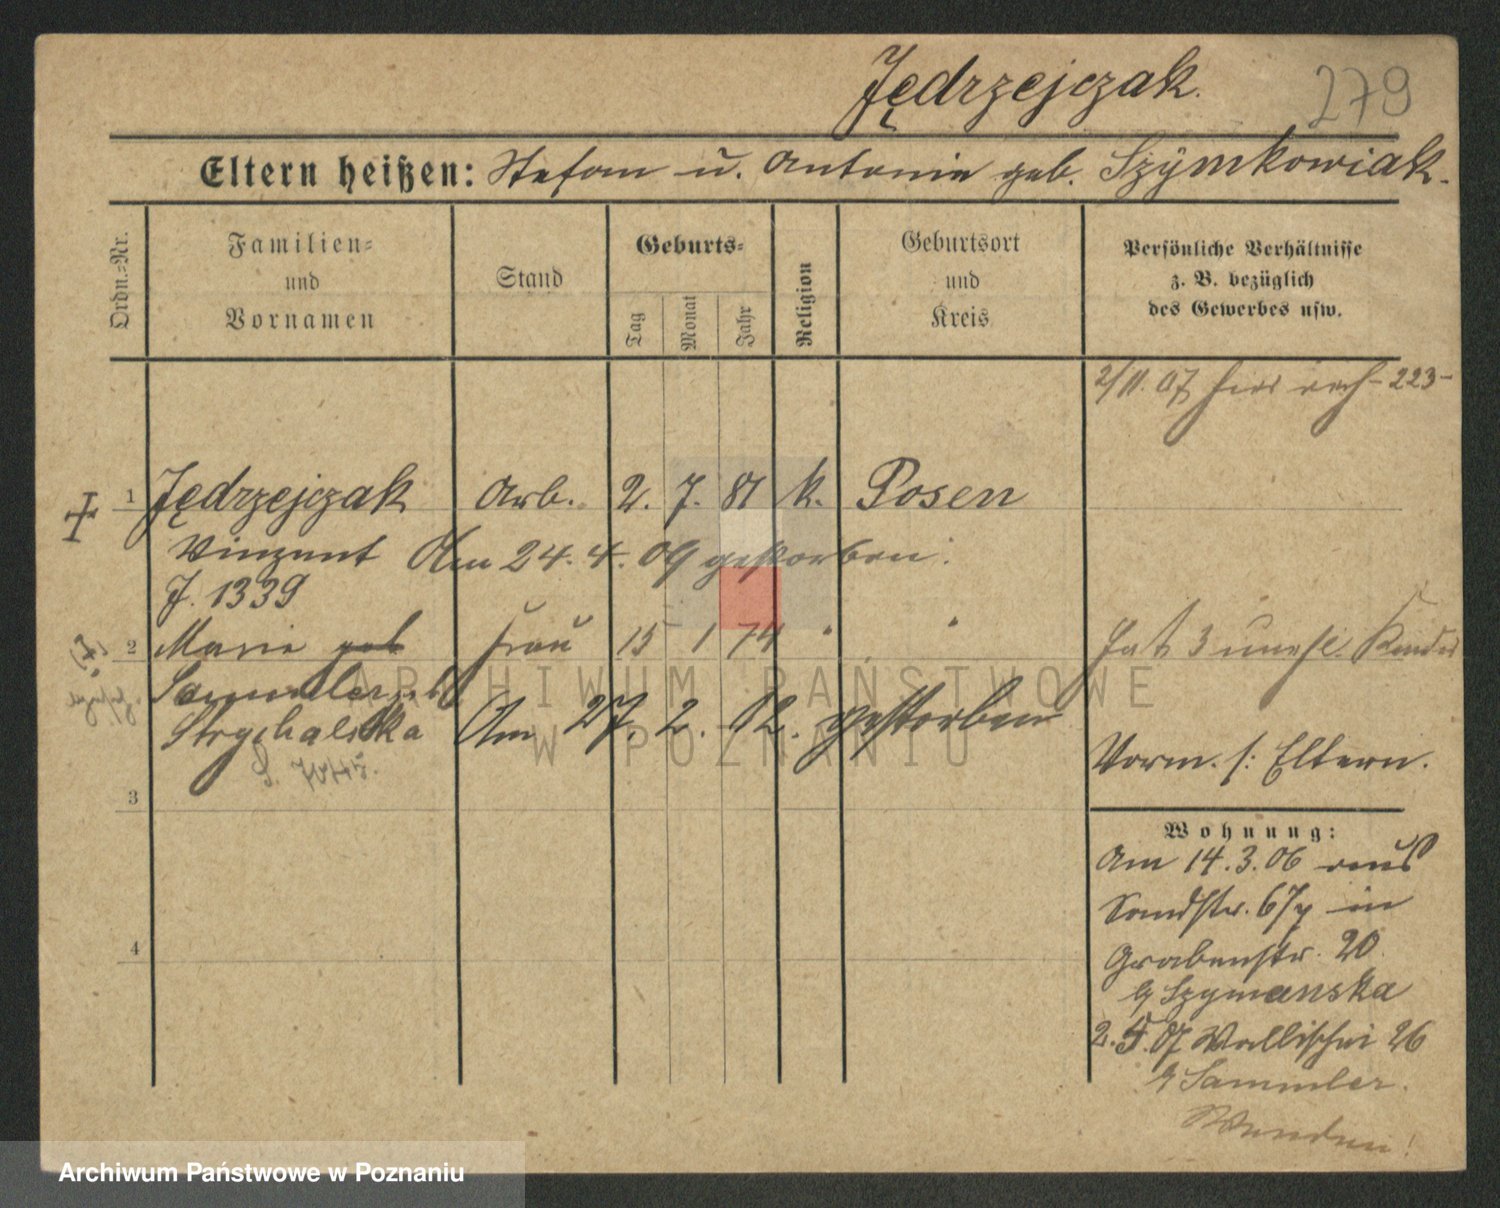 Jędrzejczak.
279
Eltern heißen: Stefan u. Antonie geb. Szymkowiak.
Ordn.-Nr.
Familien- und Vornamen
Stand
Geburts-
Tag
Monat
Jahr
Religion
Geburtsort und Kreis
Persönliche Verhältnisse
z. B. bezüglich
des Gewerbes usw.
2/11. 07 hier - 223 -
1 Jędrzejczak Arb. 2. 7. 81 k. Posen
Vinzent Am 24. 4. 09 gestorben.
J. 1339
2 Marie geb Frau 15 1 74 " "
Hat 3 unehl. Kinder
Sammler geb
Strychalska Am 27. 2. 12. gestorben
Vorm. s: Eltern.
3
4
Wohnung:
Am 14. 3. 06 aus
Sandstr. 67 in
Grabenstr. 20
b/ Szymanska
2. 5. 07 Wallischei 26
b/ Sammler.
Wenden!
ARCHIWUM PAŃSTWOWE
W POZNANIU
Archiwum Państwowe w Poznaniu